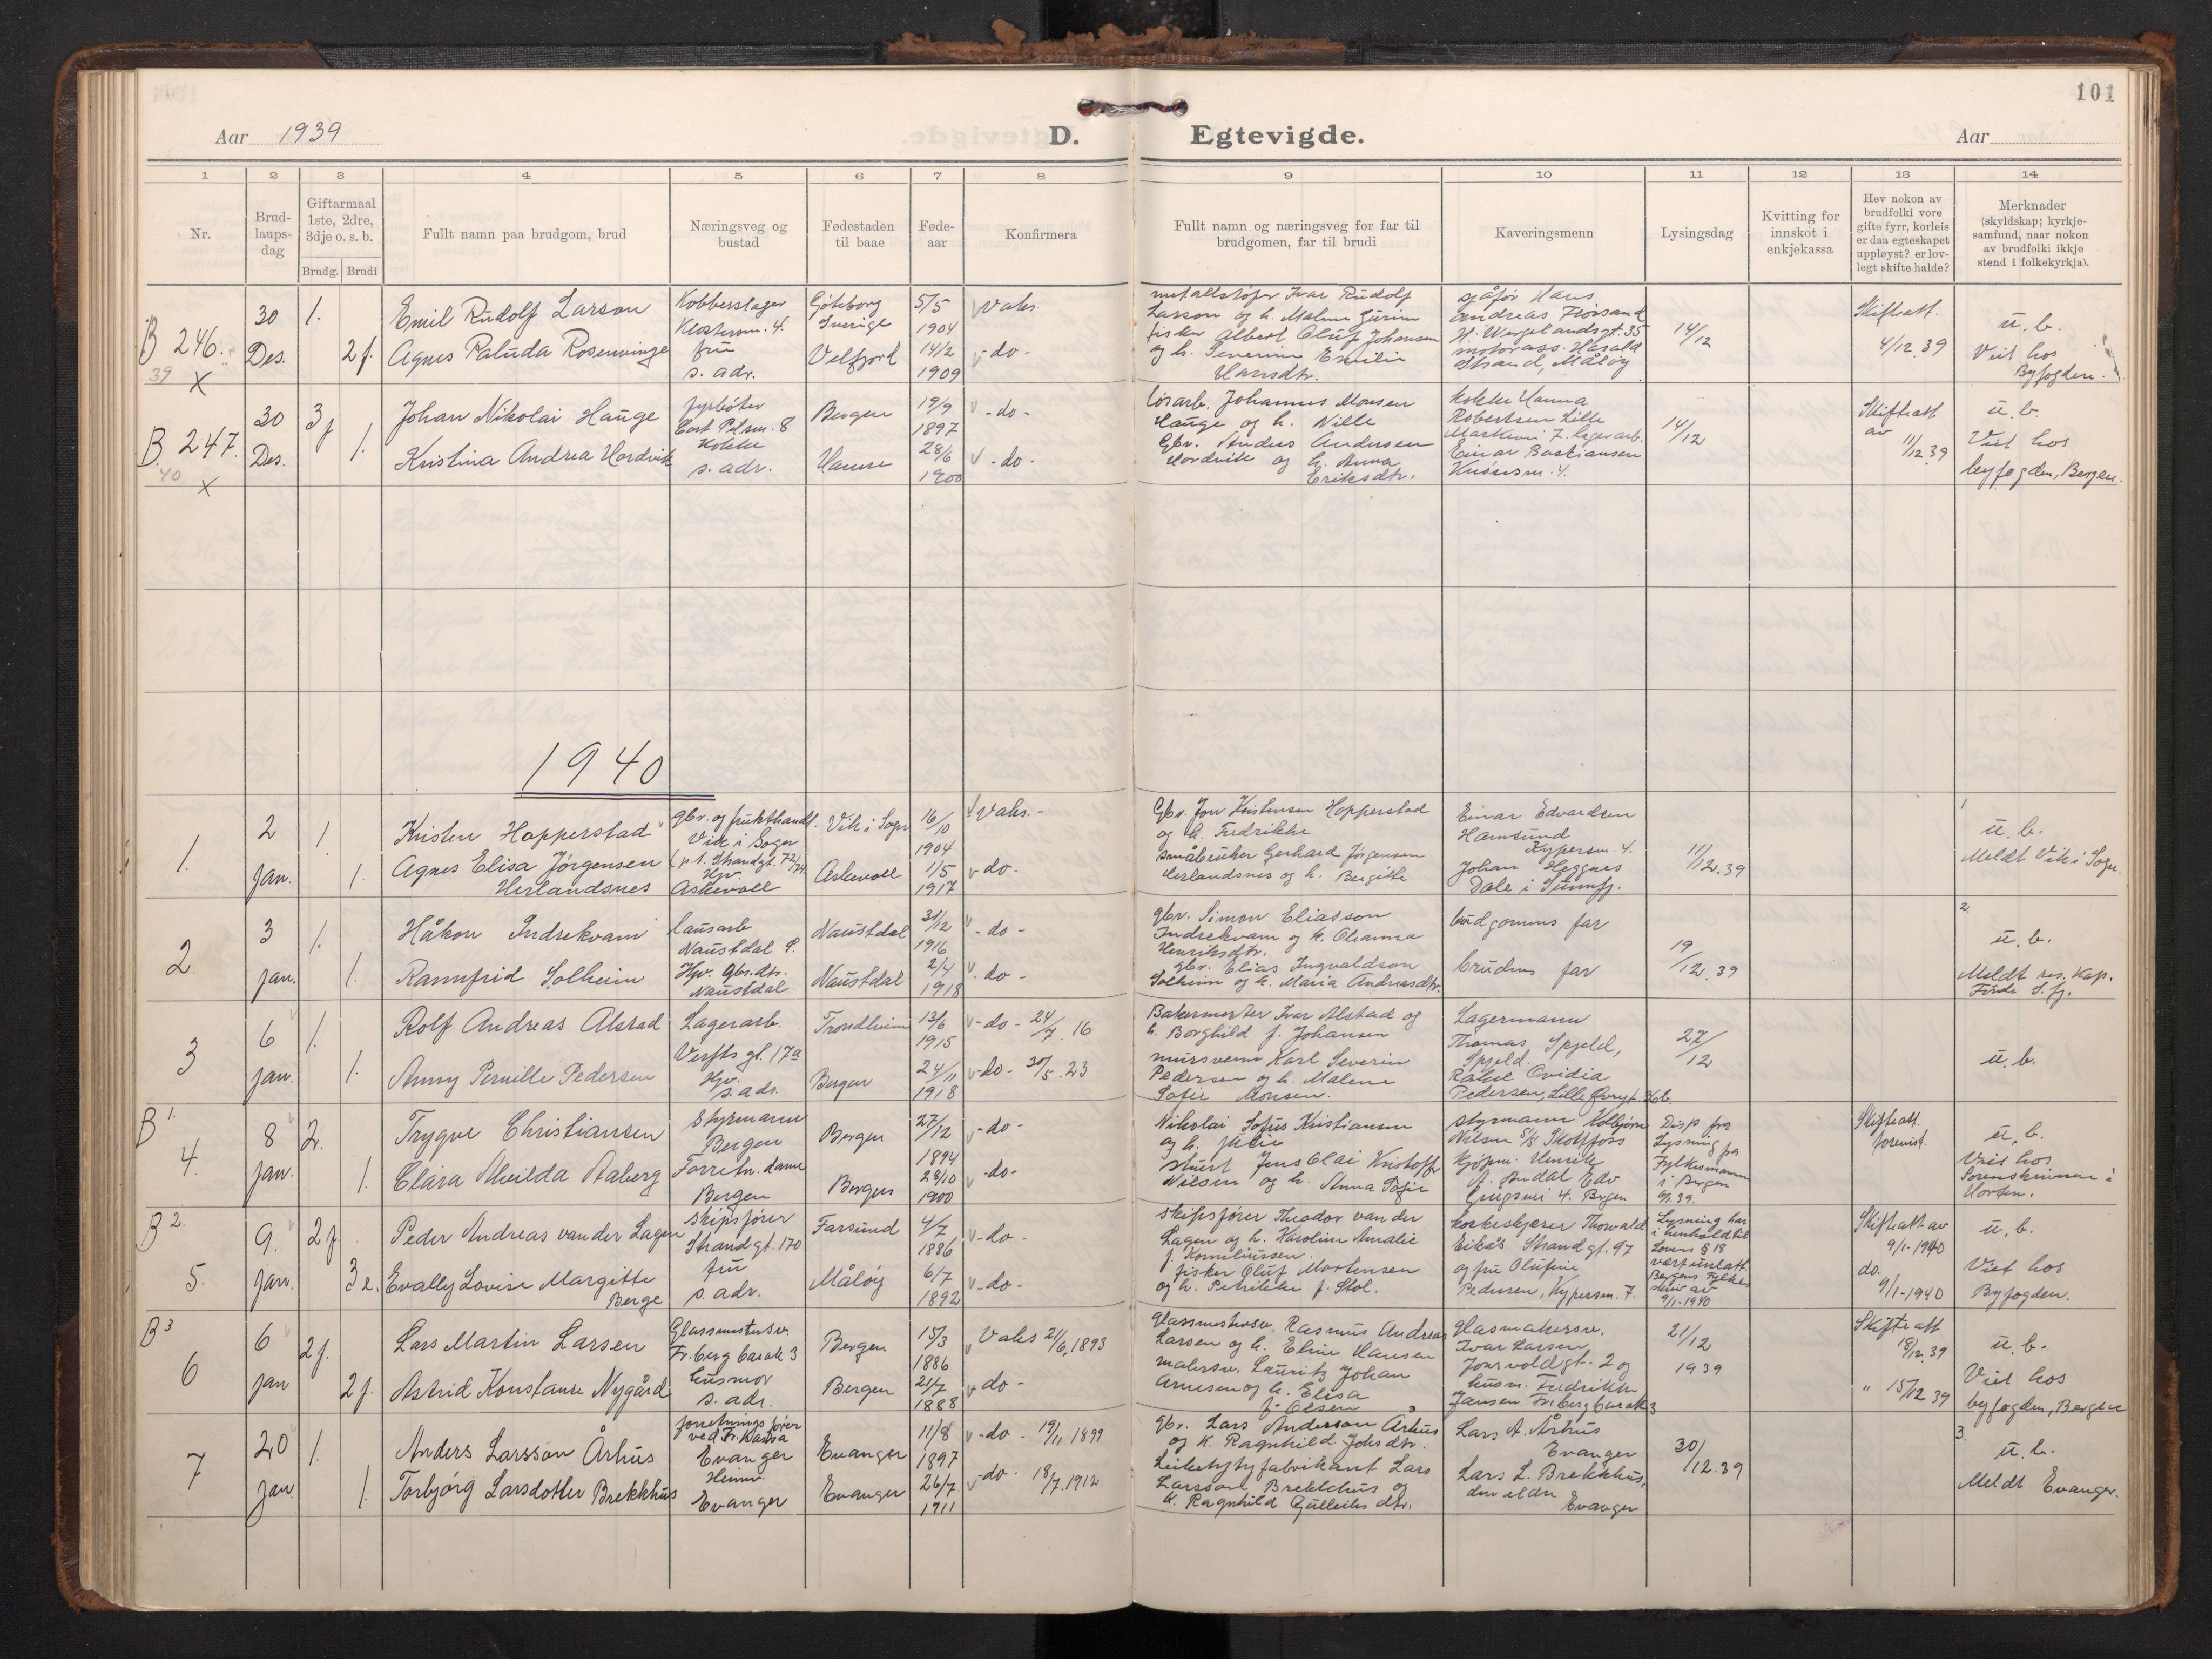 101
Aar 1939
D. Egtevigde.
Aar
1 2 3 4 5 6 7 8 9 10 11 12 13 14
Nr.
Brud-
laups-
dag
Giftarmaal
1ste, 2dre,
3dje o. s. b.
Brudg. Brudi
Fullt namn paa brudgom, brud
Næringsveg og
bustad
Fødestaden
til baae
Føde-
aar
Konfirmera
Fullt namn og næringsveg for far til
brudgomen, far til brudi
Kaveringsmenn
Lysingsdag
Kvitting for
innskot i
enkjekassa
Hev nokon av
brudfolki vore
gifte fyrr, korleis
er daa egteskapet
uppløyst? er lov-
legt skifte halde?
Merknader
(skyldskap; kyrkje-
samfund, naar nokon
av brudfolki ikkje
stend i folkekyrkja).
B 246.
39
X
30
Des.
1.
2 f.
Emil Rudolf Larson
Agnes Paluda Rosenvinge
Kobberslager
Klostersm. 4.
fru
s. adr.
Göteborg
Sverige
Velfjord
5/5
1904
14/2
1909
Vaks.
- do -
metallstöper Ivar Rudolf
Larsson og h. Malene
fisker Albert Oluf Johansen
og h. Severine Emilie
Hansdtr.
sjåfør Hans
Andreas Florsand
H. Wergelandsgt. 35
motorass. Harald
Strand, Måløy
14/12
Skifteatt.
4/12.39
u. b.
Viet hos
Byfogden.
B. 247.
40
X
30
Des.
3 f
1.
Johan Nikolai Hauge
Kristina Andrea Hordvik
fyrbøter
Cort Pilsm. 8
Kokke
s. adr.
Bergen
Hamre
19/9
1897
28/6
1900
- do -
- do -
løsarb. Johannes Monsen
Hauge og h. Nille
Gbr. Anders Andersen
Hordvik og h. Anna
Eriksdtr.
kokke Hanna
Robertsen Lille
Markevei 7. lagerarb.
Einar Bastiansen
Knøsesm. 4.
14/12
Skifteatt
av
11/12.39
u. b.
Viet hos
byfogden, Bergen.
1940
1.
2
Jan.
1.
1.
Kristen Hopperstad
Agnes Elisa Jørgensen
Herlandsnes
gbr. og frukthandl.
Vik i Sogn
(p.t. Strandgt. 72/74.
Hjv.
Askevoll
Vik i Sogn
Askevoll
16/10
1904
1/5
1917
Vaks. -
- do -
Gbr. Jon Kristensen Hopperstad
og h. Fredrikke
småbruker Gerhard Jørgensen
Herlandsnes og h. Bergitte
Einar Edvardsen
Hamsund
Kypersm. 4.
Johan Heggnes
Dale i Sunnfj.
11/12.39
1
u. b.
Meldt Vik i Sogn.
2.
3
Jan.
1.
1.
Håkon Indrekvam
Rannfrid Solheim
lausarb
Naustdal S.
Hjv. Gbr.dtr.
Naustdal
Naustdal
Naustdal
31/12
1916
2/4
1918
- do -
- do -
gbr. Simon Eliasson
Indrekvam og k. Oleanna
Henriksdtr.
gbr. Elias Ingvaldson
Solheim og k. Maria Andreasdtr.
brudgomens far
brudens far
19/12.39
2.
u. b.
Meldt res. kap.
Førde S. fj.
3
6
Jan.
1.
1.
Rolf Andreas Alstad
Anny Pernille Pedersen
Lagerarb.
Verftsgt. 17a
Hjv.
s. adr.
Trondheim
Bergen
13/6
1915
24/11
1918
- do - 24/7.16
- do - 30/5.23
Bakermester Ivar Alstad og
h. Borghild f. Johansen
mursvenn Karl Severin
Pedersen og h. Malene
Sofie Monsen.
Lagermann
Thomas Spjeld,
Spjeld.
Rakel Ovidia
Pedersen, Lille Øvregt. 36b.
27/12
u. b.
B 1.
4.
8
Jan.
2.
1.
Trygve Christiansen
Clara Alvilda Aaberg
Styrmann
Bergen
Forretn. dame
Bergen
Bergen
Bergen
27/12
1894
28/10
1900
- do -
- do -
Nikolai Sofus Kristiansen
og h.
stuert Jens Olai Kristoffer
Nilsen og h. Anna Sofie
styrmann
Nilsen S/S Skotfoss
kjøpm. Henrik
A. Audal Edv
Griegsvei 4. Bergen
Disp fra
Lysning fra
Fylkesmannen
i Bergen
Skifteatt.
forevist.
u. b.
Viet hos
Sorenskriveren i
Horten.
B 2.
5.
9.
Jan.
2 f
3 e.
Peder Andreas van der Lagen
Evally Lovise Margitte
Berge
skipsfører
Strandgt. 170
fru
s. adr.
Farsund
Måløy
4/7
1886
6/7
1892
- do -
- do -
skipsfører Theodor van der
Lagen og h. Karoline Amalie
f. Korneliussen.
fisker Oluf Mortensen
og h. Petrikke f. Stol.
korkeskjærer Thorvald
Eikås Strandgt. 97
og fru Olufine
Pedersen, Kypersm. 7.
Lysning har
i henhold til
Lovens § 18
vært unlatt.
Bergens Fylkes
skriv av
9/1-1940
Skifteatt av
9/1-1940
do.
9/1-1940
u. b.
Viet hos
Byfogden.
B 3
6
6
Jan
2 f.
2 f.
Lars Martin Larsen
Astrid Konstanse Nygård
Glassmestersv.
Fr.berg barak 3
husmor
s. adr.
Bergen
Bergen
15/3
1886
21/7
1888
Vaks 21/6,1893
- do -
Glassmestersv. Rasmus Andreas
Larsen og h. Eline Hansen
malersv. Lauritz Johan
Arnesen og h. Elisa
f. Olsen
Glasmakersv.
Ivar Larsen,
Jonsvoldgt. 2 og
husm. Fredrikke
Jansen Fr.berg barak 3
21/12
1939
Skifte att
18/12.39
" 15/12 39
u. b.
Viet hos
byfogden, Bergen
7
20
Jan
1.
1.
Anders Larsson Århus
Torbjørg Larsdotter Brekkhus
forretningsfører
ved Fr. Kassa
Evanger
Heimv.
Evanger
Evanger
Evanger
11/8
1897
26/7
1911
- do - 19/11 1899
- do - 18/7.1912
gbr. Lars Anderson Århus
og k. Ragnhild Johsdtr.
Leiketyfabrikant Lars
Larsson Brekkhus og
k. Ragnhild Gulleiksdtr.
Lars A. Århus
Evanger
Lars L. Brekkhus,
den eldre
Evanger
30/12.39
3.
u. b.
Meldt Evanger.